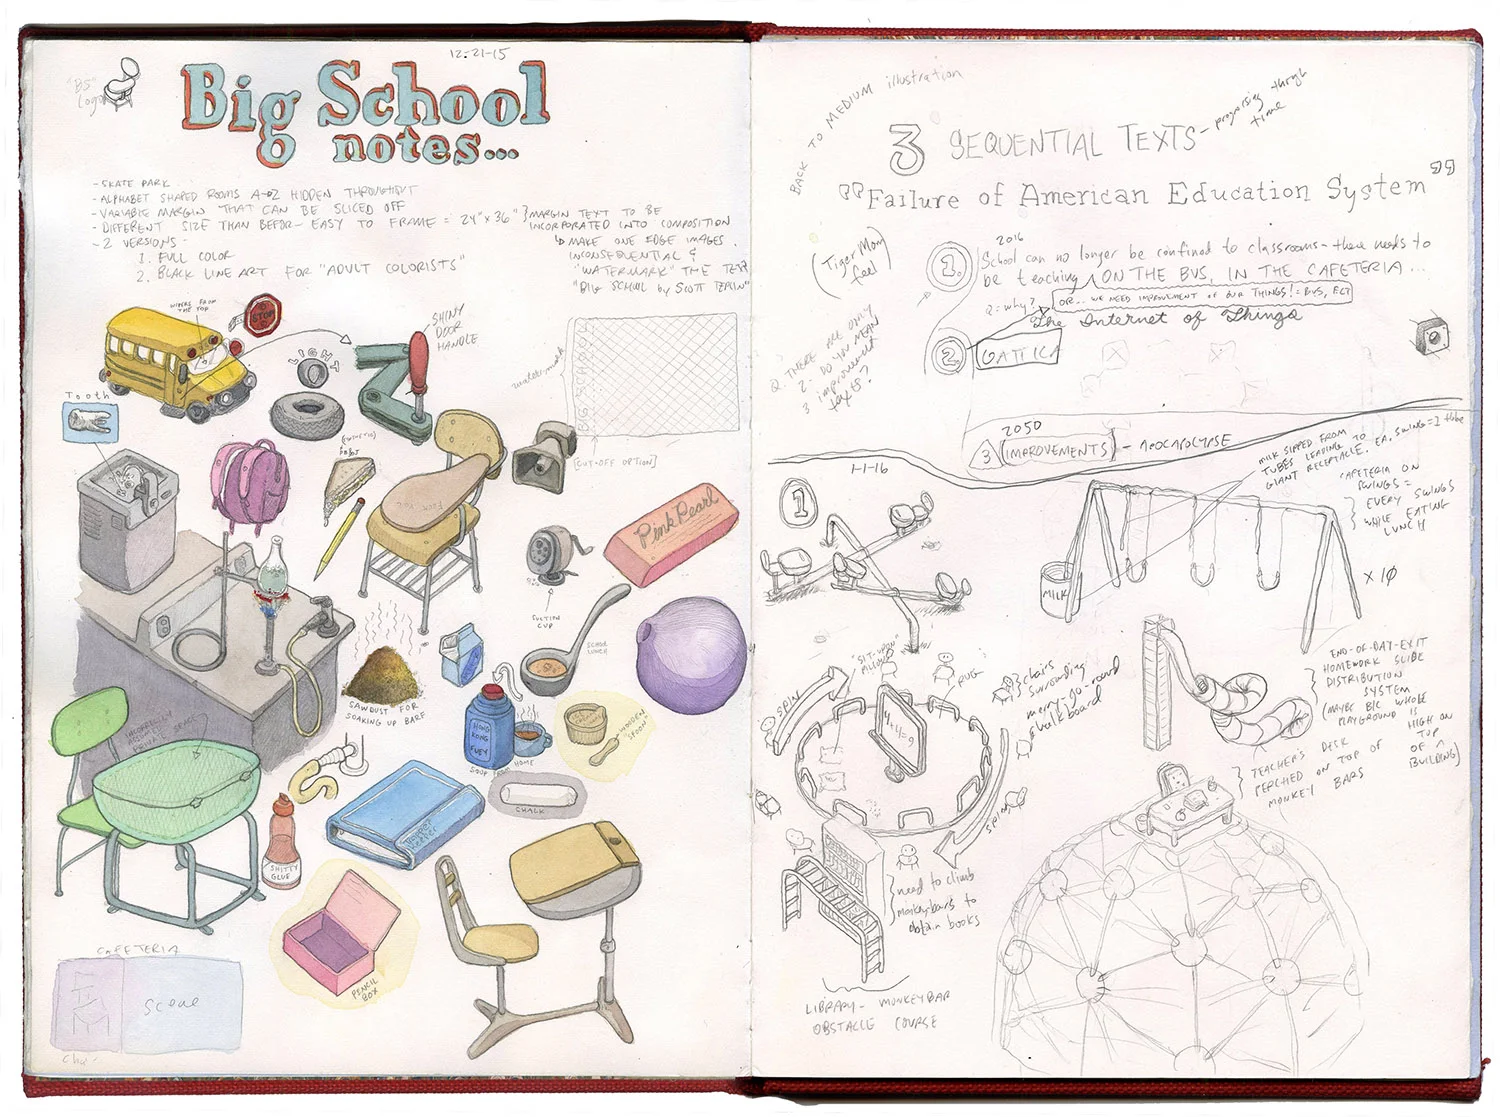 12-21-15
"BS"
Logo
Big School
notes...
- SKATE PARK
- ALPHABET SHAPED ROOMS A→Z HIDDEN THROUGHOUT
- VARIABLE MARGIN THAT CAN BE SLICED OFF
- DIFFERENT SIZE THAN BEFOR- EASY TO FRAME = 24"x36"
- 2 VERSIONS -
1. FULL COLOR
2. BLACK LINE ART FOR "ADULT COLORISTS"
MARGIN TEXT TO BE
INCORPORATED INTO COMPOSITION
MAKE ONE EDGE IMAGES
INCONSEQUENTIAL &
"WATERMARK" THE TEXT
"BIG SCHOOL by SCOTT TEPLIN"
WIPERS FROM
THE TOP
STOP
LIGHT
SHINY
DOOR
HANDLE
watermark
BIG SCHOOL
[CUT-OFF OPTION]
Tooth
Pink Pearl
SUCTION
CUP
SCHOOL
LUNCH
SAWDUST FOR
SOAKING UP BARF
HONG
KONG
FUEY
SOUP FROM HOME
WOODEN
"SPOON"
CHALK
TRAPPER
KEEPER
SHITTY
GLUE
PENCIL
BOX
CAFETERIA
Scene
BACK TO MEDIUM illustration
3 SEQUENTIAL TEXTS - progressing through
time
"Failure of American Education System"
(Tiger Mom
feel)
2016
1. School can no longer be confined to classrooms - there needs to
be teaching ON THE BUS, IN THE CAFETERIA...
Q: why?
OR... WE NEED IMPROVEMENT OF OUR THINGS! = BUS, ECT
The Internet of Things
2. GATTICA
Q. THERE ARE ONLY
2 - DO YOU MEAN
3 improvement
texts?
2050
3 (IMPROVEMENTS) - APOCALYPSE
1-1-16
1
MILK SIPPED FROM
TUBES LEADING TO
GIANT RECEPTACLE. EA. SWING = 1 tube
CAFETERIA ON
SWINGS =
EVERY SWINGS
WHILE EATING
LUNCH
MILK
x 10
"SIT-UPON"
PILLOWS
RUG
SPIN
4+4=9
chairs
surrounding
merry-go-round
chalkboard
SPIN
END-OF-DAY-EXIT
HOMEWORK SLIDE
DISTRIBUTION
SYSTEM
(MAYBE B/C WHOLE
PLAYGROUND IS
HIGH ON
TOP
OF
BUILDING)
TEACHER'S DESK
PERCHED ON TOP OF
MONKEY BARS
need to climb
monkeybars to
obtain books
LIBRARY - MONKEYBAR
OBSTACLE COURSE